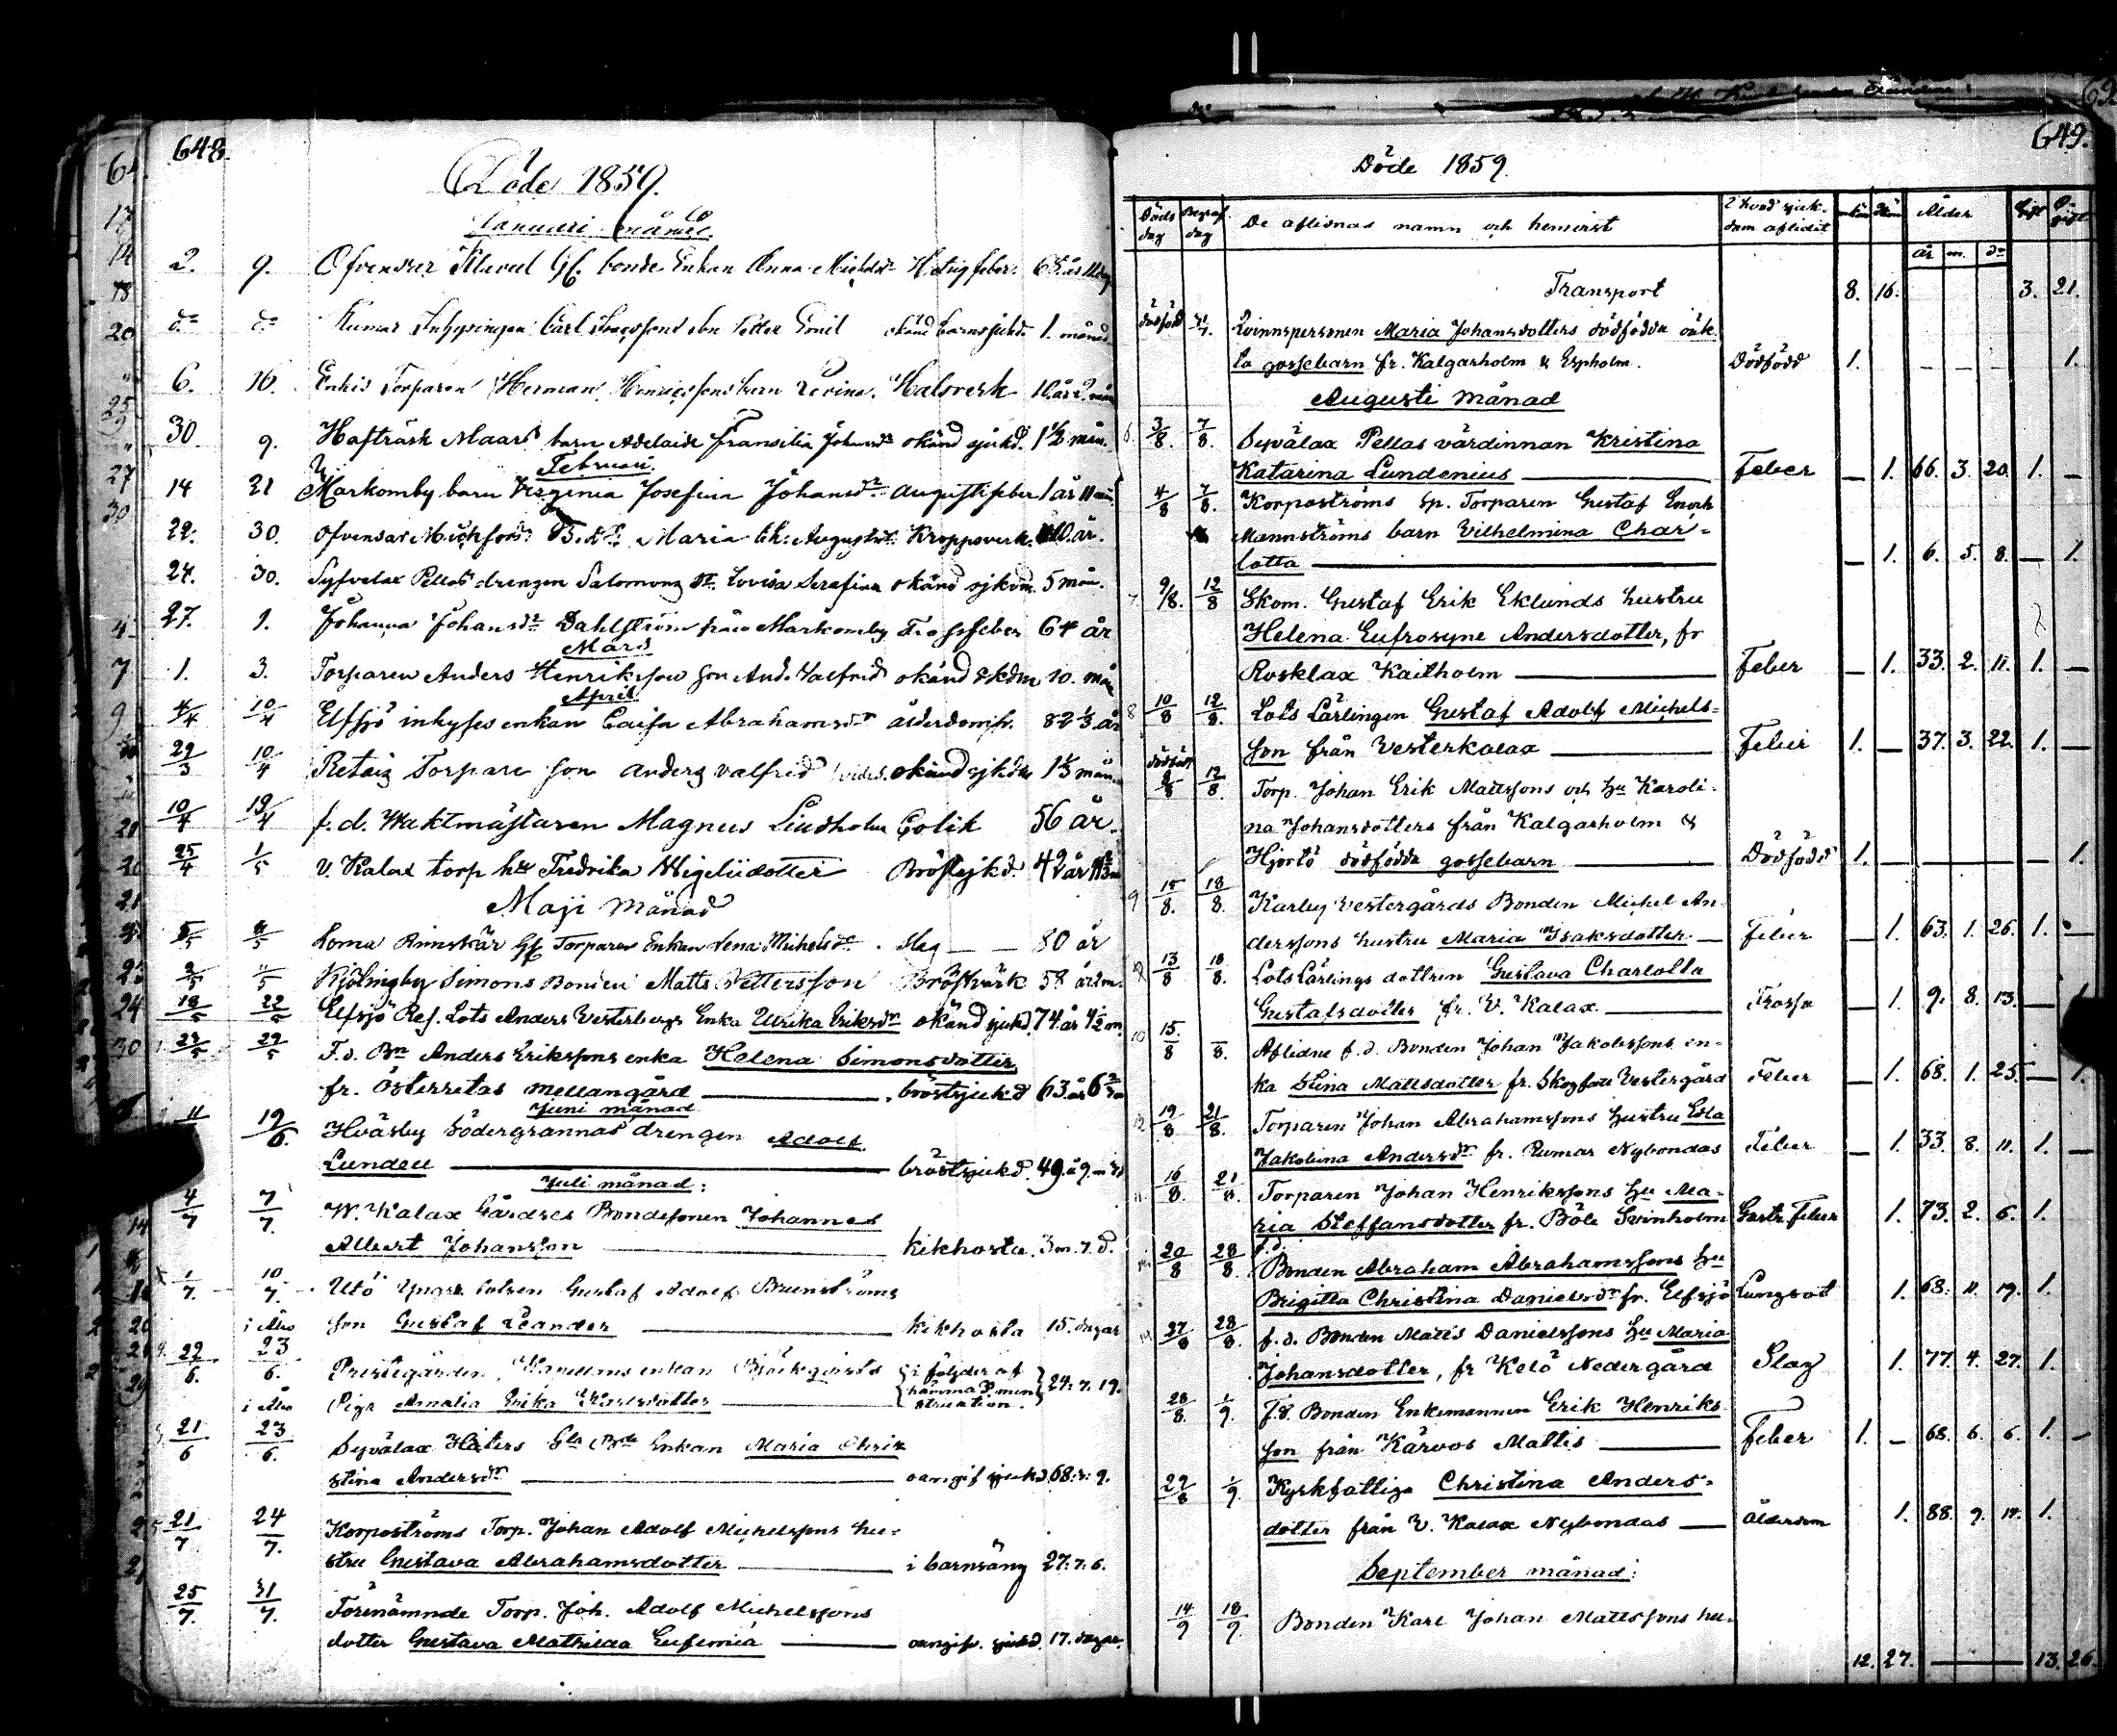 648.
Döde 1859.
Januari månad.
2. 9. Ofvensor Klaveal Gf. bonde Enkan Anna Michelsdr Hetsig feber
do do Rumar Inhysingen Carl son Petter Emil okänd barnsjukd. 1. månad
6. 16. Enkis Torparen Herman barn Levina. Halsverk 10 år 2. mån
30. 9. Hafträsk Maars barn Adelaide Fransilia Johansdr okänd sjukd. 1½ mån.
Februari.
14 21 Markomby barn Virginia Josefina Johansdr Augustifeber 1 år 11 mån
22. 30. Ofvensor B.dr Maria Ch: Augustdr Kroppsverk 10 år.
24. 30. Syfvelax Pellas drengen Salomons dr Lovisa Serafina okänd sjkdm. 5 mån.
27. 9. Johanna Johansdr Dahlström från Markomby Frossfeber 64 år
Mars
1. 3. Torparen Anders Henriksson son And. Valfrid okänd skdm 10. mån
April
4/4 10/4 Elfsjö inhyses enkan Caisa Abrahamsdr ålderdomsv. 82⅓ år
29/3 10/4 Retais Torpare son Anders Valfrid okänd sjkdm 1⅓ mån
10/4 19/4 f.d. Waktmästaren Magnus Lindholm Colik 56 år.
25/4 1/5 V. Kalax torp hu Fredrika Migeliidotter Bröstsjkd. 42 år
Maji Månad
5/5 Loma Rinnskär Gf Torparen Enkan Lena Michelsdr. Slag — — 80 år
2/5 11/5 Kjölingby Simons Bonden Matts Pettersson Bröstvärk 58 år
18/5 22/5 Elfsjö Ref. Lots Anders Vesterbergs Enka Ulrika Eriksdr okänd sjukd. 74 år 4½ m.
23/5 29/5 F.d. Bn Anders Erikssons enka Helena Simonsdotter
fr. Österretas mellangård — bröstsjukd 63 år 6⅔
Juni månad
11 19/6. Hväsby Södergrannas drengen Adolf
Lunden — bröstsjukd. 49 å 9. m
Juli månad:
4/7 7/7. W. Kalax Gärdres Bondesonen Johannes
Albert Johansson — kikhosta. 3 m. 7. d.
1/7. 10/7. Utö Yngre lotsen Gustaf Adolf Brunströms
i Åbo son Gustaf Leander — kikhosta 15. dagar
22/6. 23/6. Prestegården, enkan Björkqvists { i följder af } 24. 7. 19.
i Åbo Piga Amalia Erika Karlsdotter — { hämmad men struation. }
21/6 23/6. Syvälax Häters Gla Bde Enkan Maria Chris
stina Andersdr — oangif sjukd. 68. 3. 9.
21/7 24/7. Korpoströms Torp. Johan Adolf Michelssons hu-
stru Gustava Abrahamsdotter — i barnsäng 27. 7. 6.
25/7. 31/7. Förenämnde Torp. Joh. Adolf Michelssons
dotter Gustava Mathilda Eufemia — oangifv. sjukd. 17. dagar.
649.
Döde 1859.
Döds dag Begraf. dag De aflidnas namn och hemvist I hvad sjuk- dom aflidit mkön qkön Ålder Gift O- gift
år m. dr
Transport 8. 16. 3. 21.
dödfödd 31/7. Qvinnspersonen Maria Johansdotters dödfödda oäk-
ta gossebarn fr. Kalgarholm & Espholm. Dödfödd 1. — — — 1.
Augusti Månad
6. 3/8. 7/8. Syvälax Pellas värdinnan Kristina
Katarina Lundenius — Feber — 1. 66. 3. 20. 1. —
4/8 7/8. Korpoströms Sp. Torparen Gustaf Enoch
Mannströms barn Vilhelmina Char-
lotta — — 1. 6. 5. 8. — 1.
7. 9/8. 12/8 Skom. Gustaf Erik Eklunds hustru
Helena Eufrosyne Andersdotter, fr
Rosklax Kaitholm — Feber — 1. 33. 2. 11. 1. —
8 10/8 12/8. Lots Lärlingen Gustaf Adolf Michels-
son från Vesterkalax — Feber 1. — 37. 3. 22. 1. —
dödfödd 8/8 12/8. Torp. Johan Erik Mattssons och Hu Karoli-
na Johansdotters från Kalgarholm &
Hjortö dödfödda gossebarn — Dödfödd 1. — — — 1.
9 15/8. 18/8. Karlby Vestergårds Bonden Michel An-
derssons hustru Maria Isaksdotter. — Feber — 1. 63. 1. 26. 1. —
13/8 18/8. Lots Lärlings dottren Gustava Charlotta
Gustafsdotter fr. V. Kalax. — Frossa — 1. 9. 8. 13. — 1
10 15/8 —/8. Aflidne f.d. Bonden Johan Jakobssons en-
ka Stina Mattsdotter fr. Skogfatt Vestergård Feber — 1. 68. 1. 25. — 1.
12 19/8 21/8. Torparen Johan Abrahamssons hustru Edla
Jakobina Andersdr fr. Rumar Nybondas Feber — 1. 33. 8. 11. 1. —
11. 16/8. 21/8. Torparen Johan Henrikssons Hu Ma-
ria Steffansdotter fr. Böle Svinholm Gastr. Feber 1. 73. 2. 6. 1.
20/8 28/8. f.d. Bonden Abraham Abrahamssons Hu
Brigitta Christina Danielsdr fr. Elfsjö Lungsot 1. 68. 11. 19. 1.
27/8 28/8. f.d. Bonden Matts Danielssons Hu Maria
Johansdotter, fr Kelö Nedergård Slag 1. 77. 4. 27. 1.
28/8. 1/9. f.d. Bonden Enkemannen Erik Henriks-
son från Kärvos Mattis — Feber 1. — 68. 6. 6. 1. —
29/8 1/9. Kyrkfattiga Christina Anders-
dotter från V. Kalax Nybondas — ålderdom 1. 88. 9. 1.
September månad:
14/9 18/9. Bonden Karl Johan Mattssons hu-
12. 27. — 13. 26.